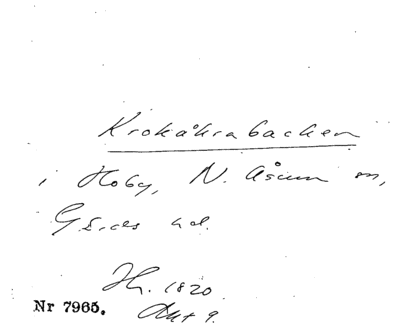 Krokåkrabacken
i Hoby, N. Åsum sn,
Gärds hd.
Hh. 1820
Akt 9.
Nr 7965.